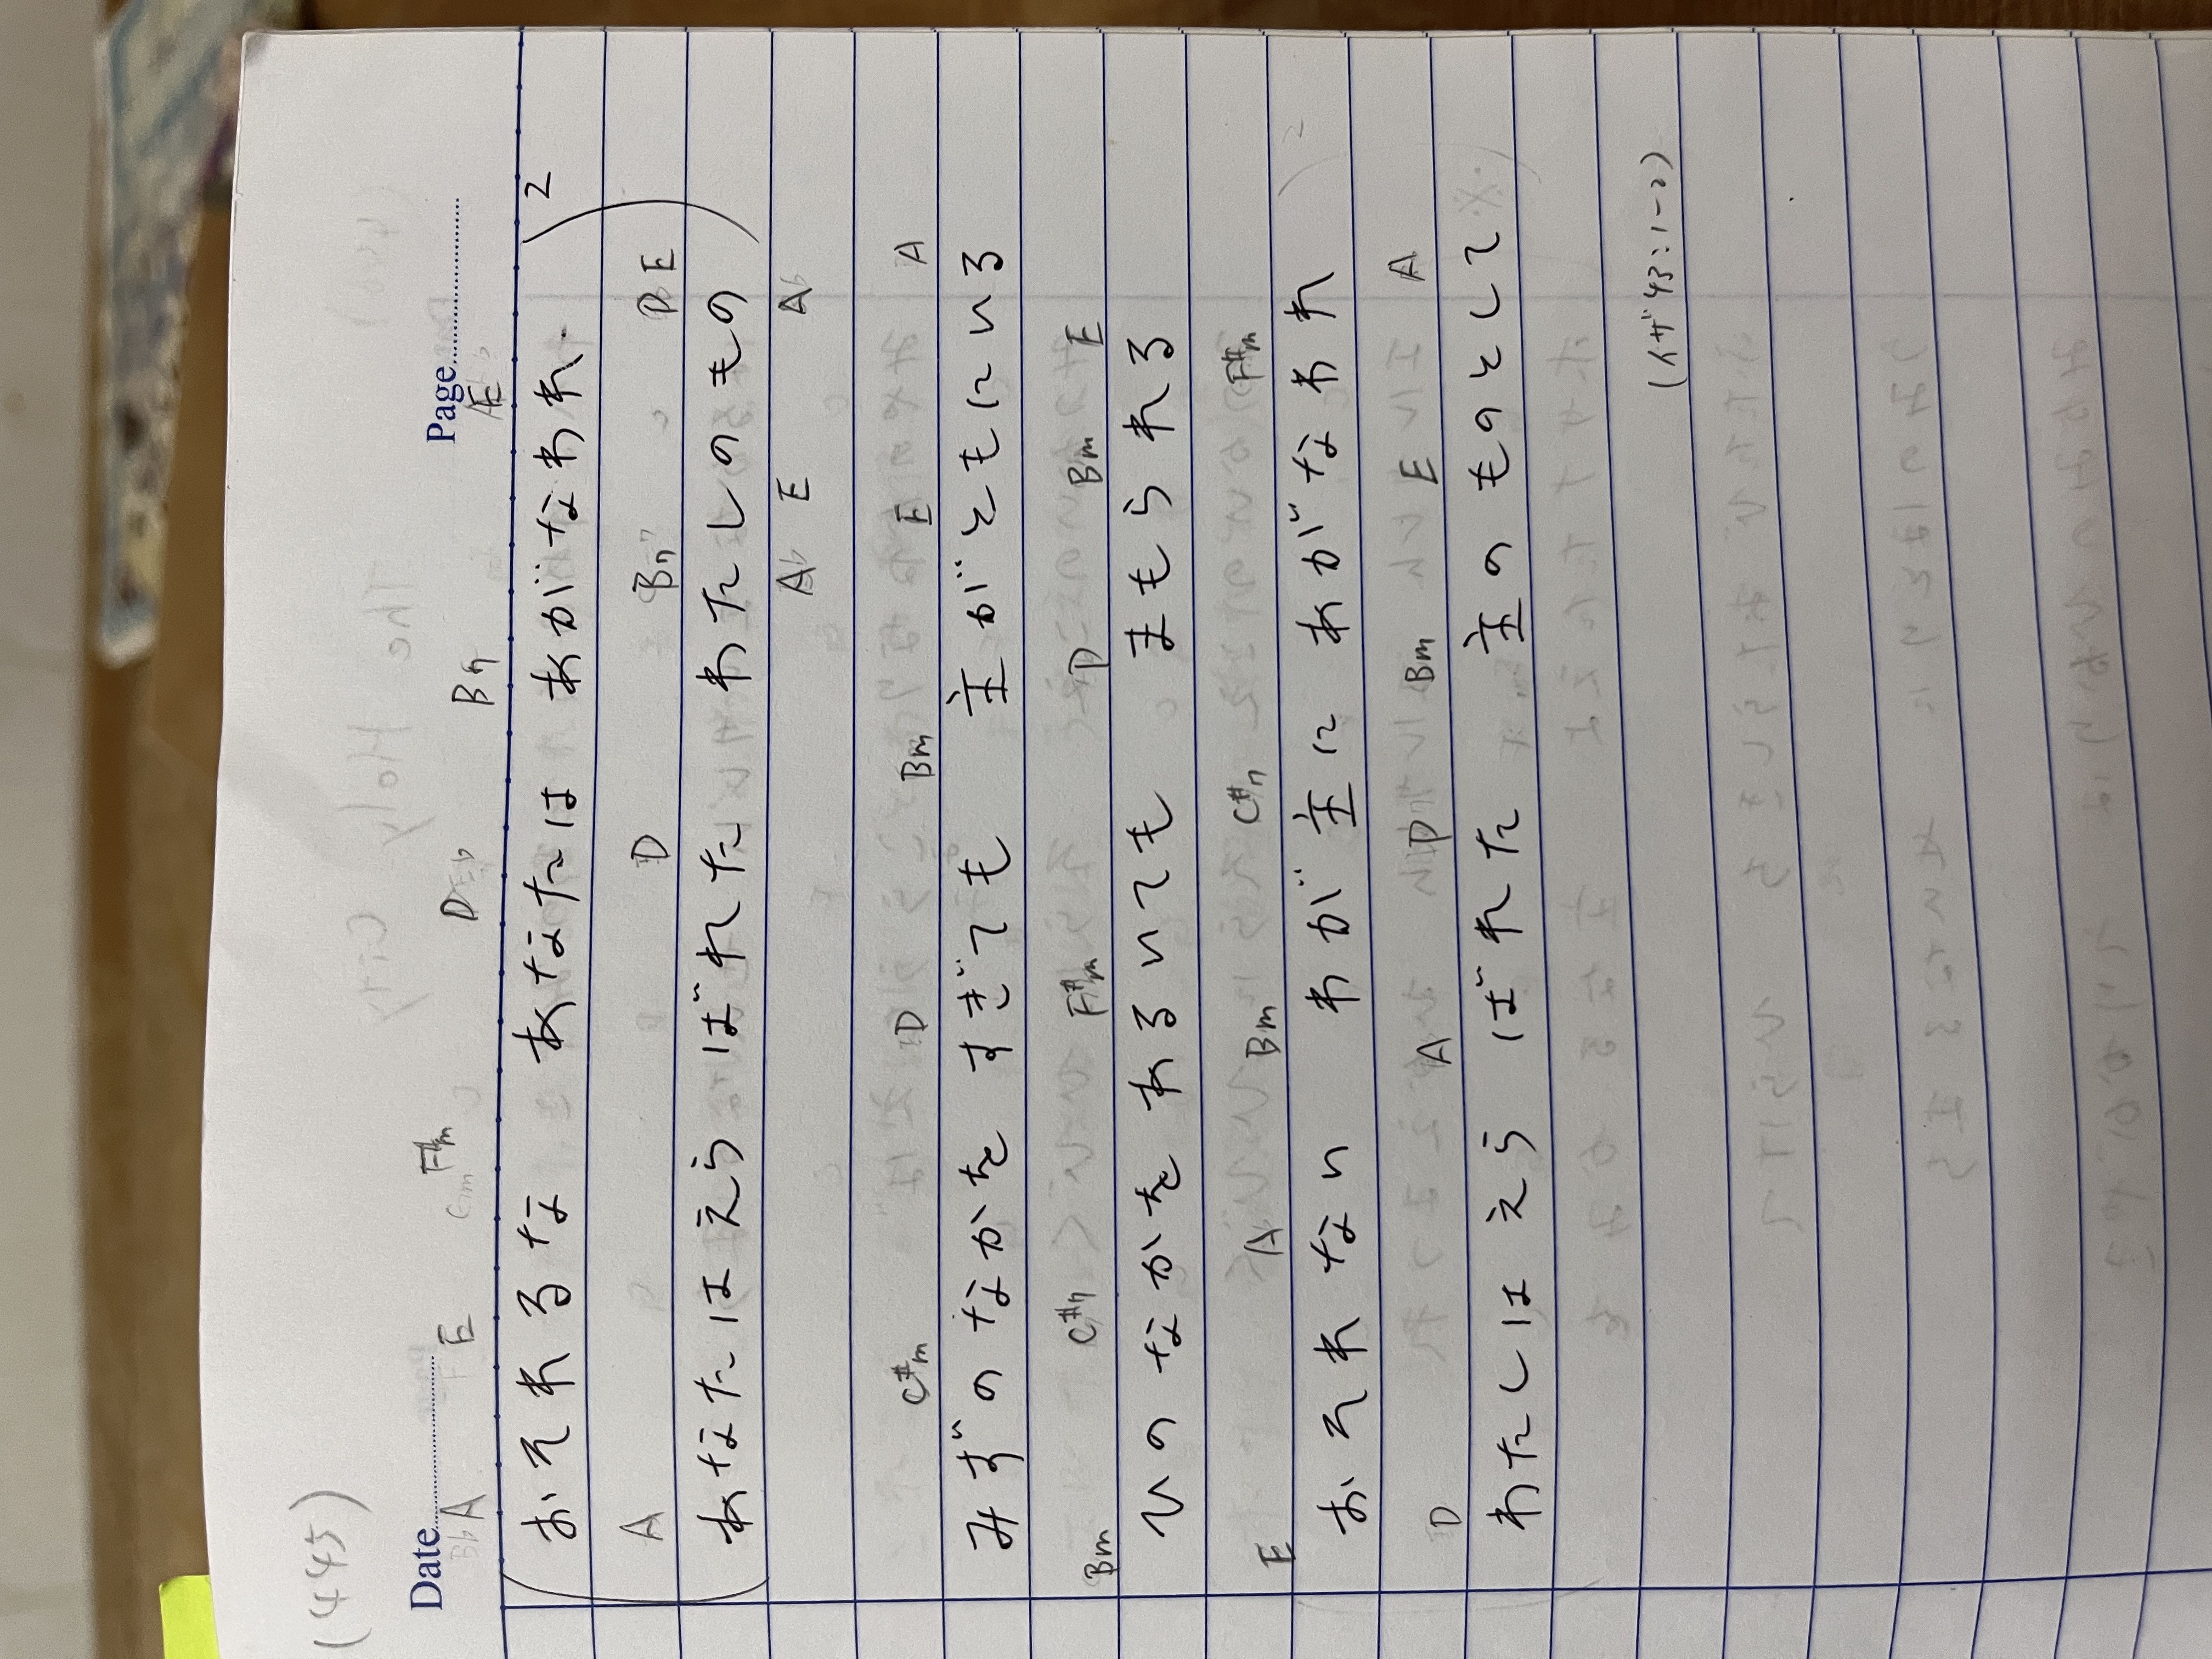 (445)
Date Page
A E F#m D B7 E
おそれるな あなたは あがなわれ 2
A D B7 D E
あなたは えらばれた わたしのもの
A E A
C#m D Bm E A
みずのなかを すぎても 主がともにいる
Bm C#7 F#m D Bm E
ひのなかを あるいても まもられる
E A Bm C#7 F#m
おそれない わが主に あがなわれ 2
D A D Bm E A
わたしは えらばれた 主のものとして
(イザ43:1-2)